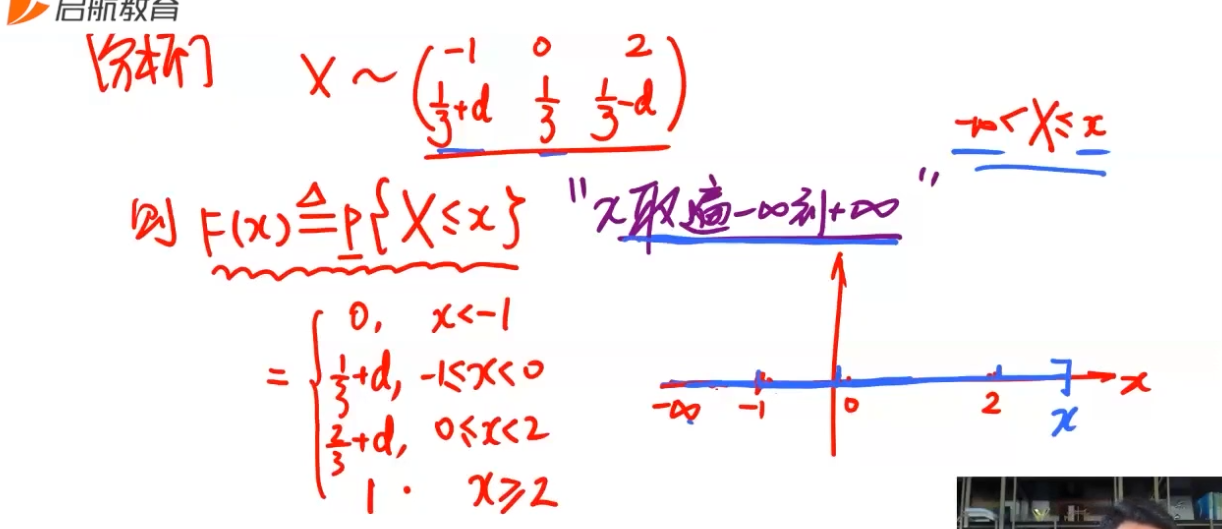 启航教育
[分析] X ~ ( -1 0 2
1/3+d 1/3 1/3-d )
-∞<X≤x
则 F(x) ≜ P{X≤x} "x取遍-∞到+∞"
= { 0, x<-1
1/3+d, -1≤x<0
2/3+d, 0≤x<2
1. x≥2
-∞ -1 0 2 x x